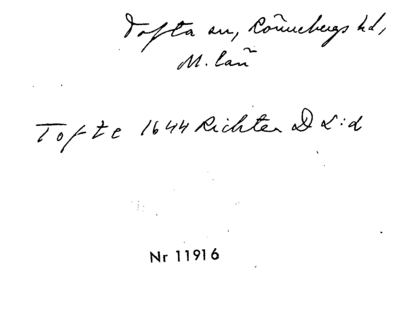 Tofta sn, Rönnebergs hd,
M. lañ
Tofte 1644 Richter D L:d
Nr 11916